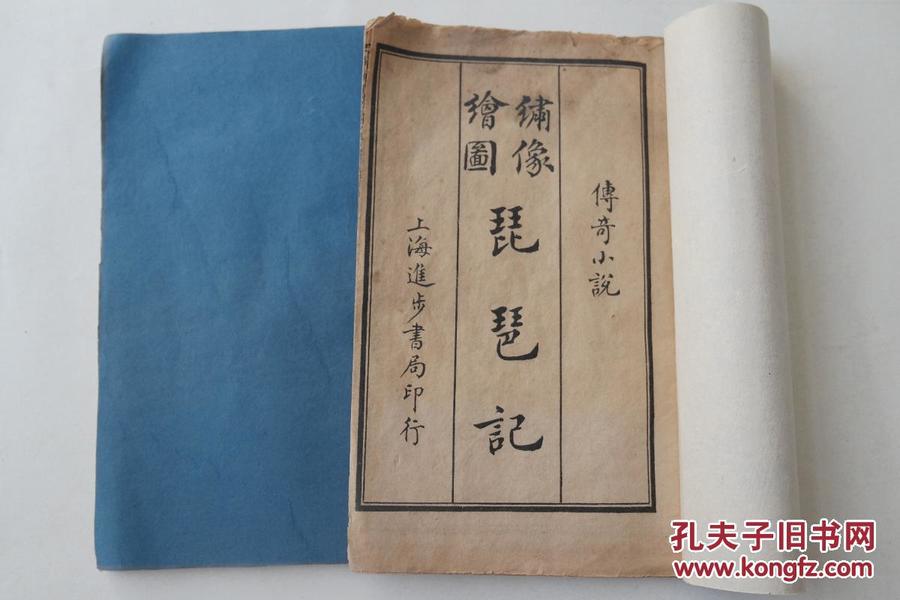 傳奇小説
繡像
繪圖
琵琶記
上海進步書局印行
孔夫子旧书网
www.kongfz.com